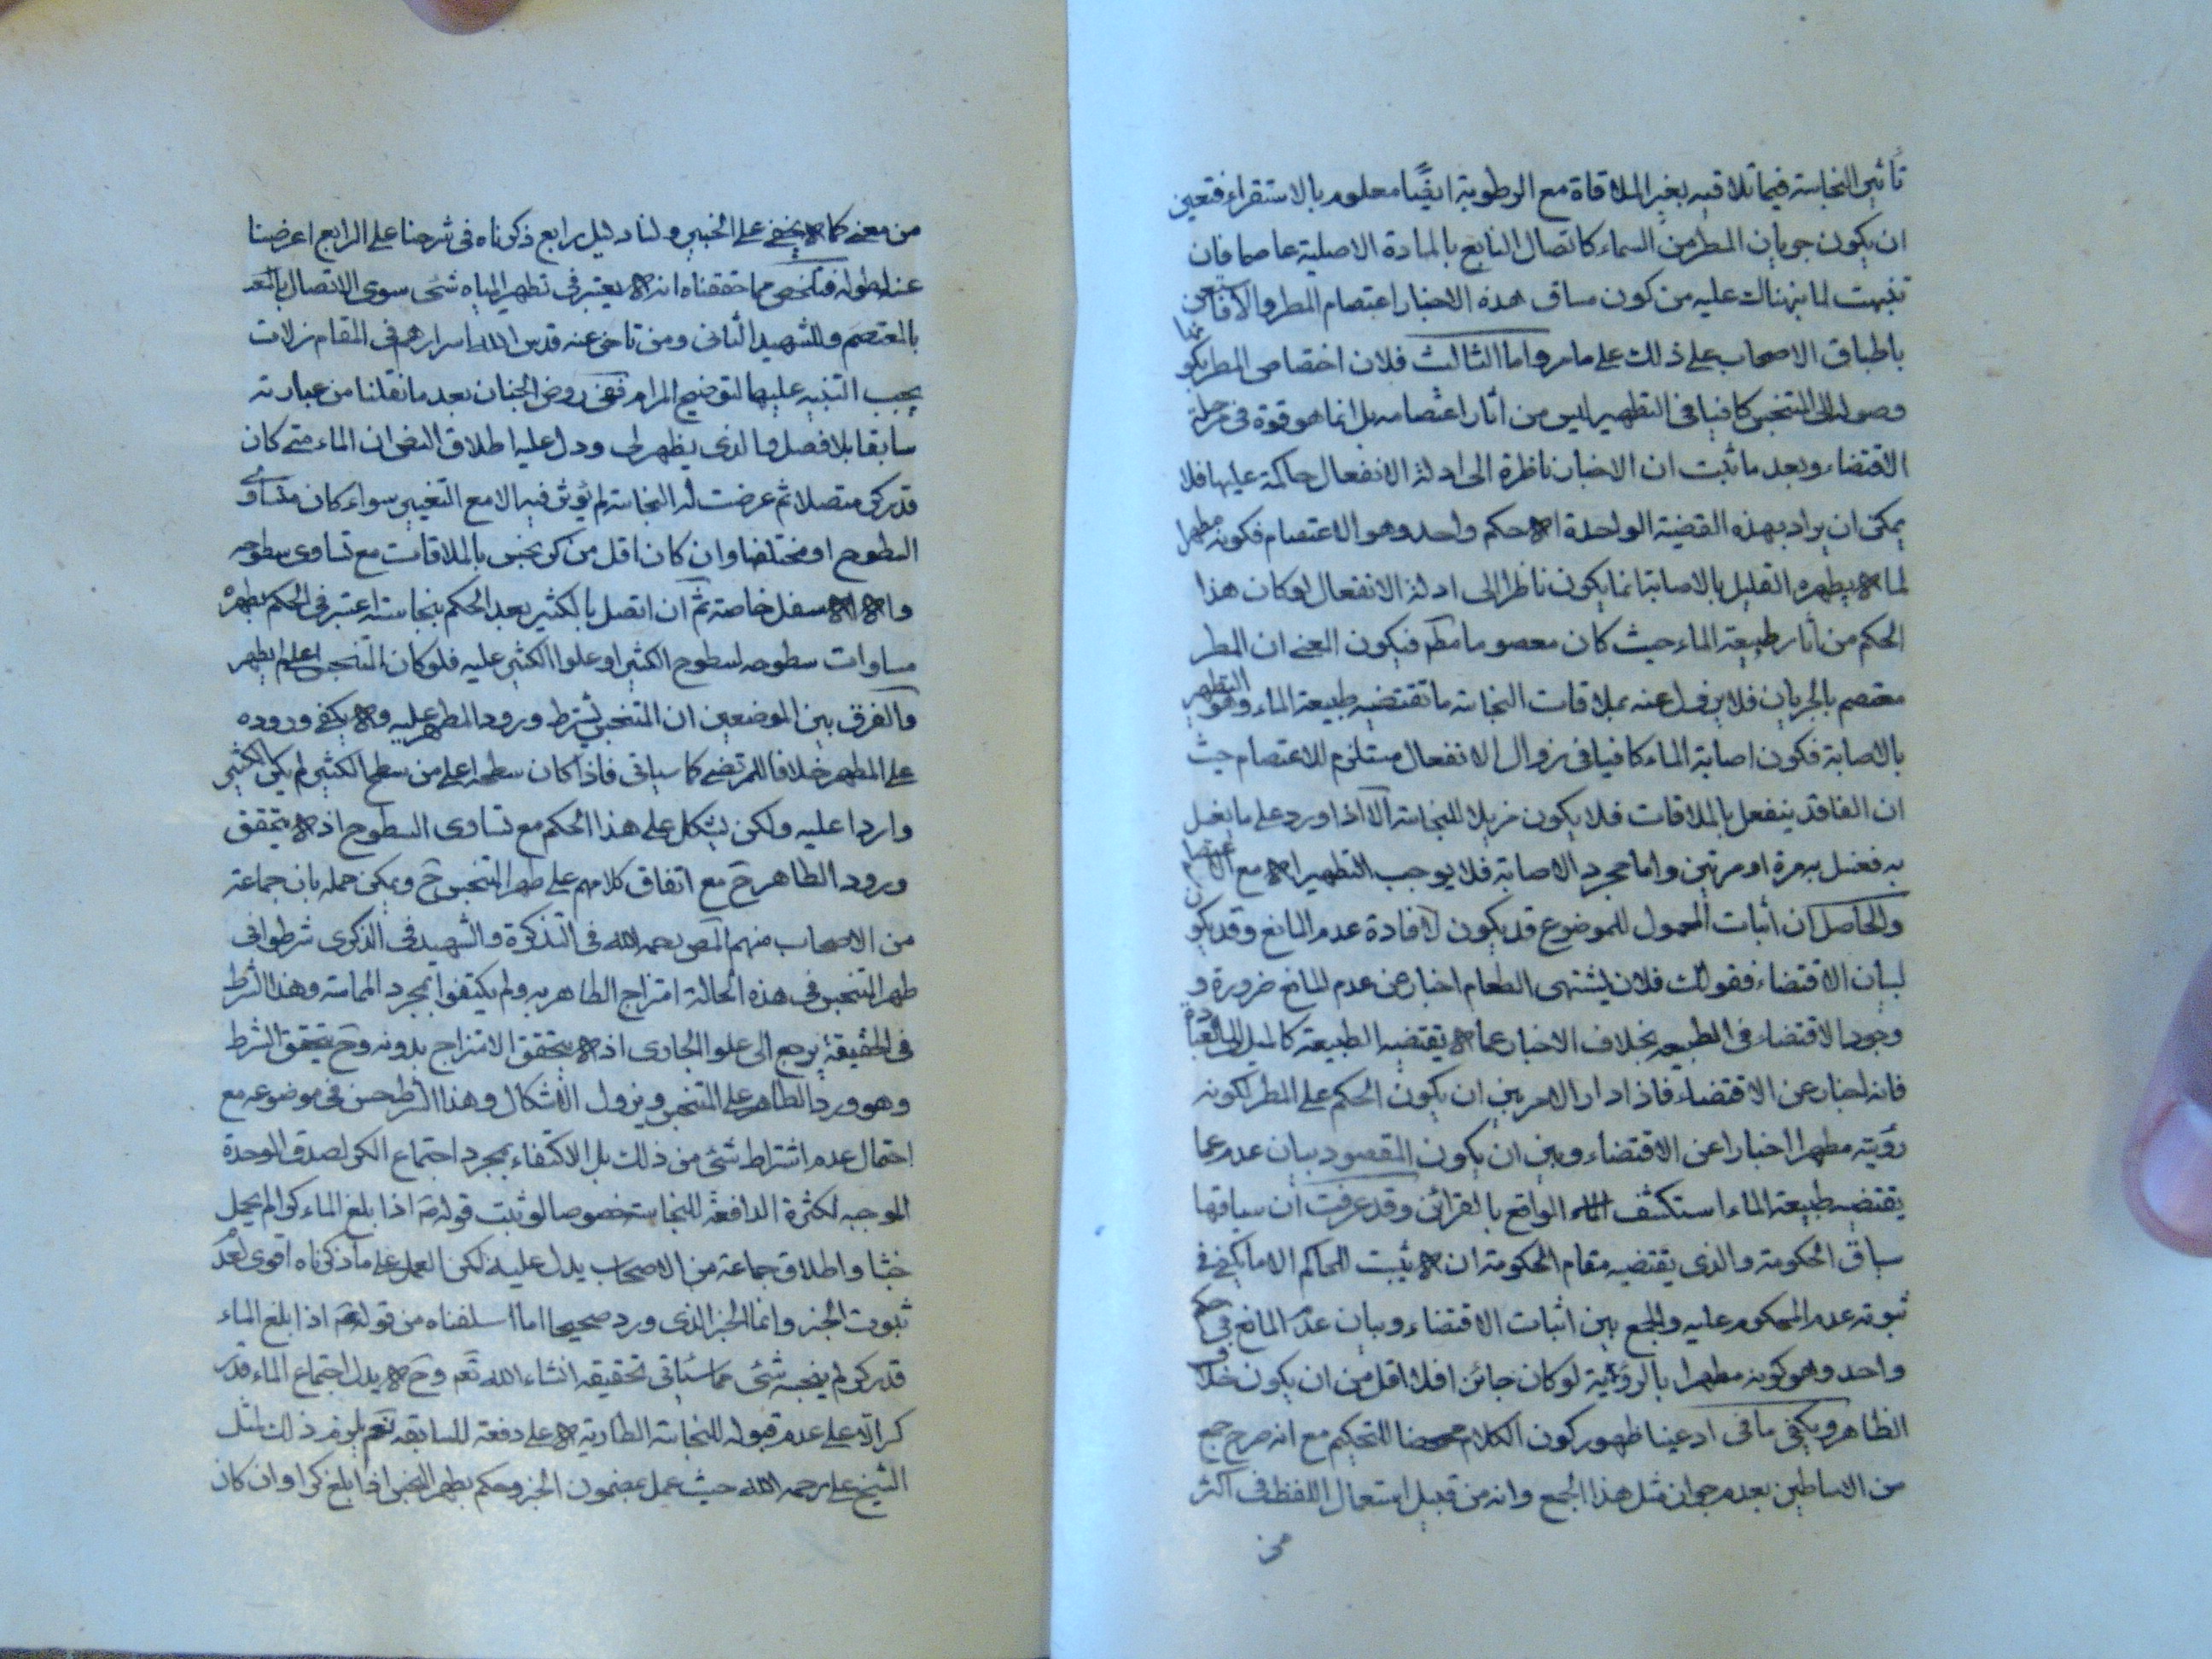 تأثير النجاسة فيما تلاقيه بغير الملاقاة مع الرطوبة ايضًا معلوم بالاستقراء فتعين
ان يكون جريان المطر من السماء كاتصال النابع بالمادة الاصلية عاصما فان
تنبهت لما نبهناك عليه من كون مساق هذه الاخبار اعتصام المطر والا فانعن
باطباق الاصحاب على ذلك على ما مر واما الثالث فلان اختصاص المطر بكو
وصوله الى المتنجس كافيا في التطهير ليس من اثار اعتصامه بل انما هو قوة في مرحلة
الاقتضاء وبعد ما ثبت ان الاخبار ناظرة الى ادلة الانفعال حاكمة عليها فلا
يمكن ان يراد بهذه القضية الواحدة الا حكم واحد وهو الاعتصام فكونه مطهرا
لما لا يطهره القليل بالاصابة انما يكون ناظرا الى ادلة الانفعال لو كان هذا
الحكم من اثار طبيعة الماء حيث كان معصوما مط فيكون المعنى ان المطر
معتصم بالجريان فلا يزول عنه بملاقات النجاسة ما تقتضيه طبيعة الماء وهو التطهير
بالاصابة فكون اصابة الماء كافيا في زوال الانفعال مستلزم للاعتصام حيث
ان الفاقد ينفعل بالملاقات فلا يكون مزيلا للنجاسة الا اذا ورد على ما يغسل
به فغسل به مرة او مرتين واما مجرد الاصابة فلا يوجب التطهير الا مع الاعتصام
والحاصل ان اثبات المحمول للموضوع قد يكون لافادة عدم المانع وقد يكون
لبيان الاقتضاء فقولك فلان يشتهى الطعام اخبار عن عدم المانع ضرورة و
وجود الاقتضاء في الطبيعه بخلاف الاخبار عما لا يقتضيه الطبيعة كالميل الى
فانه اخبار عن الاقتضاء فاذا دار الامر بين ان يكون الحكم على المطر لكونه
رؤيته مطهرا اخبارا عن الاقتضاء وبين ان يكون المقصود بيان عدم عما
يقتضيه طبيعة الماء استكشف الواقع بالقرائن وقد عرفت ان سياقها
سياق الحكومة والذى يقتضيه مقام الحكومة ان لا يثبت للحاكم الا ما يكفى في
ثبوته عدم المحكوم عليه والجمع بين اثبات الاقتضاء وبيان عدم المانع في حكم
واحد وهو كونه مطهرا بالرؤية لو كان جائزا فلا اقل من ان يكون خلاف
الظاهر ويكفى ما في ادعينا ظهور كون الكلام للتحكيم مع انه صرح جمع
من الاساطين بعدم جواز مثل هذا الجمع وانه من قبيل استعمال اللفظ في اكثر
من
من معنى كما لا يخفى على الخبير ولنا دليل رابع ذكرناه في شرحنا على الرابع اعرضنا
عنه لطوله فتلخص مما حققناه انه لا يعتبر في تطهير المياه شئ سوى الاتصال
بالمعتصم وللشهيد الثانى ومن تاخر عنه قدس الله اسرارهم في المقام زلات
يجب التنبيه عليها لتوضيح المرام ففى روض الجنان بعد ما نقلنا من عبارته
سابقا بلا فصل والذى يظهر لى ودل عليه اطلاق النص ان الماء متى كان
قدر كر متصلا ثم عرضت له النجاسة لم يؤثر فيه الا مع التغيير سواء كان متساوى
السطوح او مختلفها وان كان اقل من كر نجس بالملاقات مع تساوى سطوحه
والا الاسفل خاصة ثم ان اتصل بالكثير بعد الحكم بنجاسته اعتبر في الحكم بطهره
مساوات سطوحه لسطوح الكثير او علوا الكثير عليه فلو كان المتنجس اعلى لم يطهر
والفرق بين الموضعين ان المتنجس يشترط ورود المطهر عليه ولا يكفى وروده
على المطهر خلافا للمرتضى كما سياتى فاذا كان سطحه اعلى من سطح الكثير لم يكن الكثير
واردا عليه ولكن يشكل على هذا الحكم مع تساوى السطوح اذ لا يتحقق
ورود الطاهر ح مع اتفاق كلامهم على طهر المتنجس ح ويمكن حمله بان جماعة
من الاصحاب منهم المص رحمه الله في التذكرة والشهيد في الذكرى شرطوا في
طهر المتنجس في هذه الحالة امتزاج الطاهر به ولم يكتفوا بمجرد المماسة وهذا الشرط
في الحقيقة يرجع الى علو الجارى اذ لا يتحقق الامتزاج بدونه وح يتحقق الشرط
وهو ورود الطاهر على المتنجس ويزول الاشكال وهذا الشرط حسن في موضوعه مع
احتمال عدم اشتراط شئ من ذلك بل الاكتفاء بمجرد اجتماع الكر لصدق الوحدة
الموجبه لكثرة الدافعة للنجاسة خصوصا لو ثبت قوله ص اذا بلغ الماء كرا لم يحمل
خبثا واطلاق جماعة من الاصحاب يدل عليه لكن العمل على ما ذكرناه اقوى لعدم
ثبوت الخبر وانما الخبر الذى ورد صحيحا ما اسلفناه من قوله ع اذا بلغ الماء
قدر كر لم ينجسه شئ مما سياتى تحقيقه انشاء الله تعم وح لا يدل اجتماع الماء قدر
كر الا على عدم قبوله للنجاسة الطارية لا على دفعه للسابقه نعم يلزم ذلك لمثل
الشيخ على رحمه الله حيث عمل بمضمون الخبر وحكم بطهر النجس اذا بلغ كرا وان كان